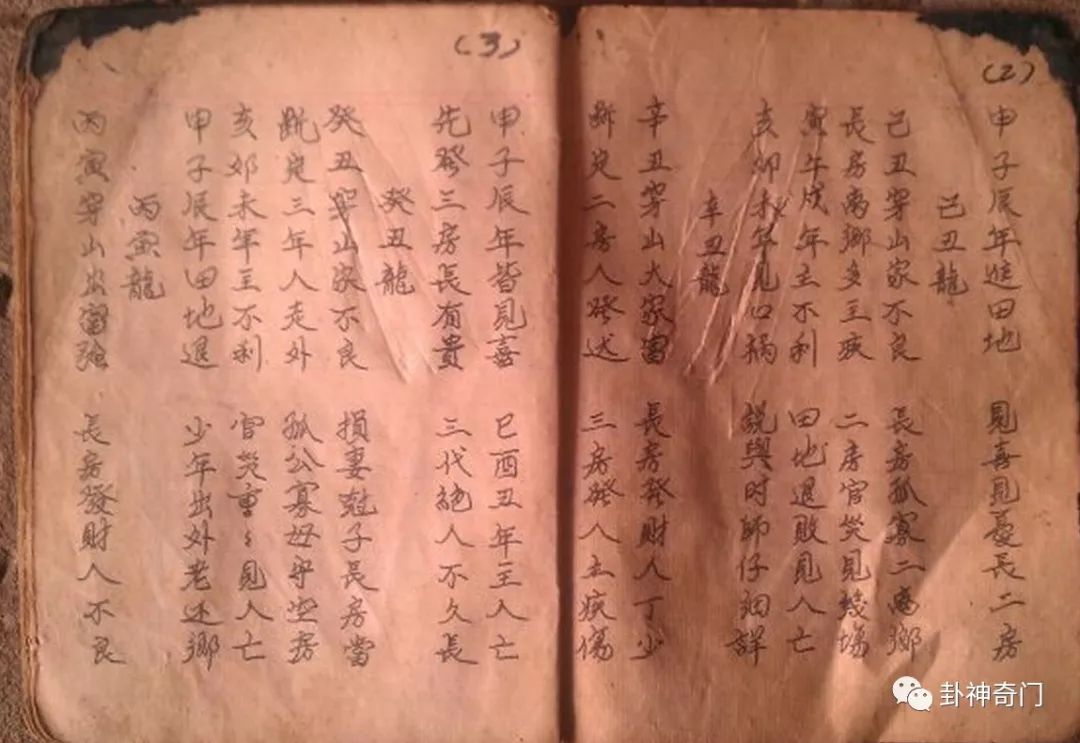 (2)
申子辰年進田地 見喜見憂長二房
己丑龍
己丑穿山家不良 長房孤寡二离鄉
長房离鄉多主疾 二房官災見幾場
寅午戌年主不利 田地退敗見人亡
亥卯未年見口禍 説與时師仔細詳
辛丑龍
辛丑穿山大家富 長房發財人丁少
斷定二房人發 三房發人主疾傷
(3)
申子辰年皆見喜 巳酉丑年主人亡
先發三房長有貴 三代絕人不久長
癸丑龍
癸丑穿山家不良 損妻尅子長房當
斷定三年人走外 孤公寡母守空房
亥卯未年主不利 官災重々見人亡
申子辰年田地退 少年出外老还鄉
丙寅龍
丙寅穿山出富強 長房發財人不良
卦神奇门